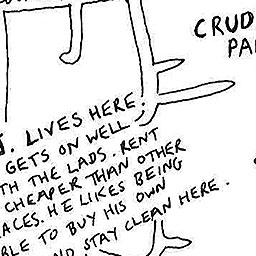 CRUD
PA
J. LIVES HERE.
GETS ON WELL
TH THE LADS. RENT
CHEAPER THAN OTHER
ACES. HE LIKES BEING
BLE TO BUY HIS OWN
ND STAY CLEAN HERE.